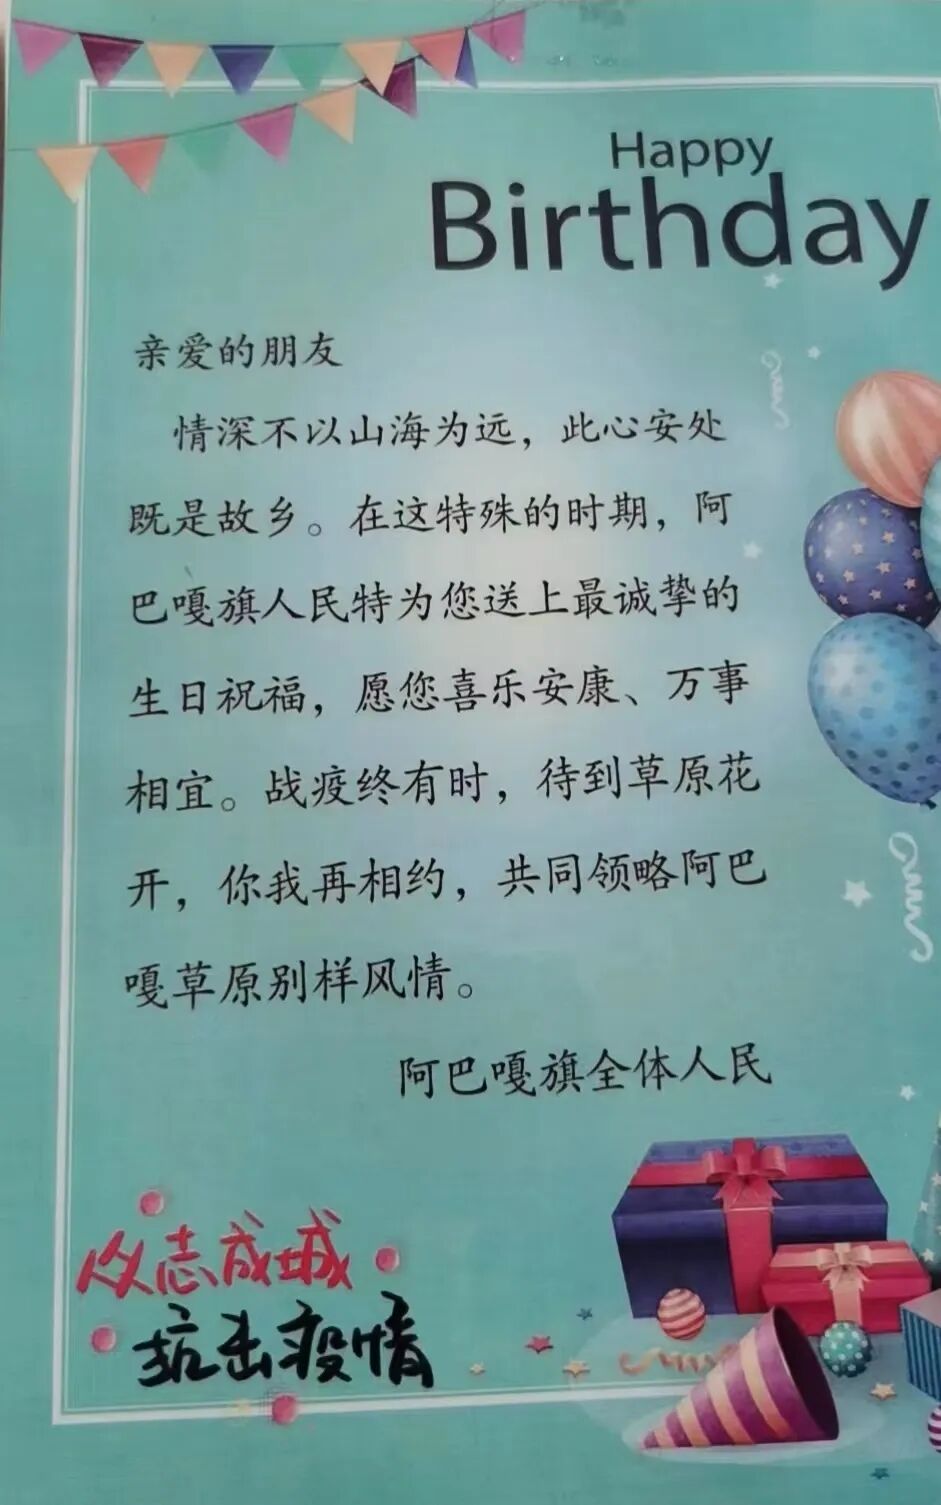 Happy
Birthday
亲爱的朋友
情深不以山海为远，此心安处
既是故乡。在这特殊的时期，阿
巴嘎旗人民特为您送上最诚挚的
生日祝福，愿您喜乐安康、万事
相宜。战疫终有时，待到草原花
开，你我再相约，共同领略阿巴
嘎草原别样风情。
阿巴嘎旗全体人民
众志成城
抗击疫情